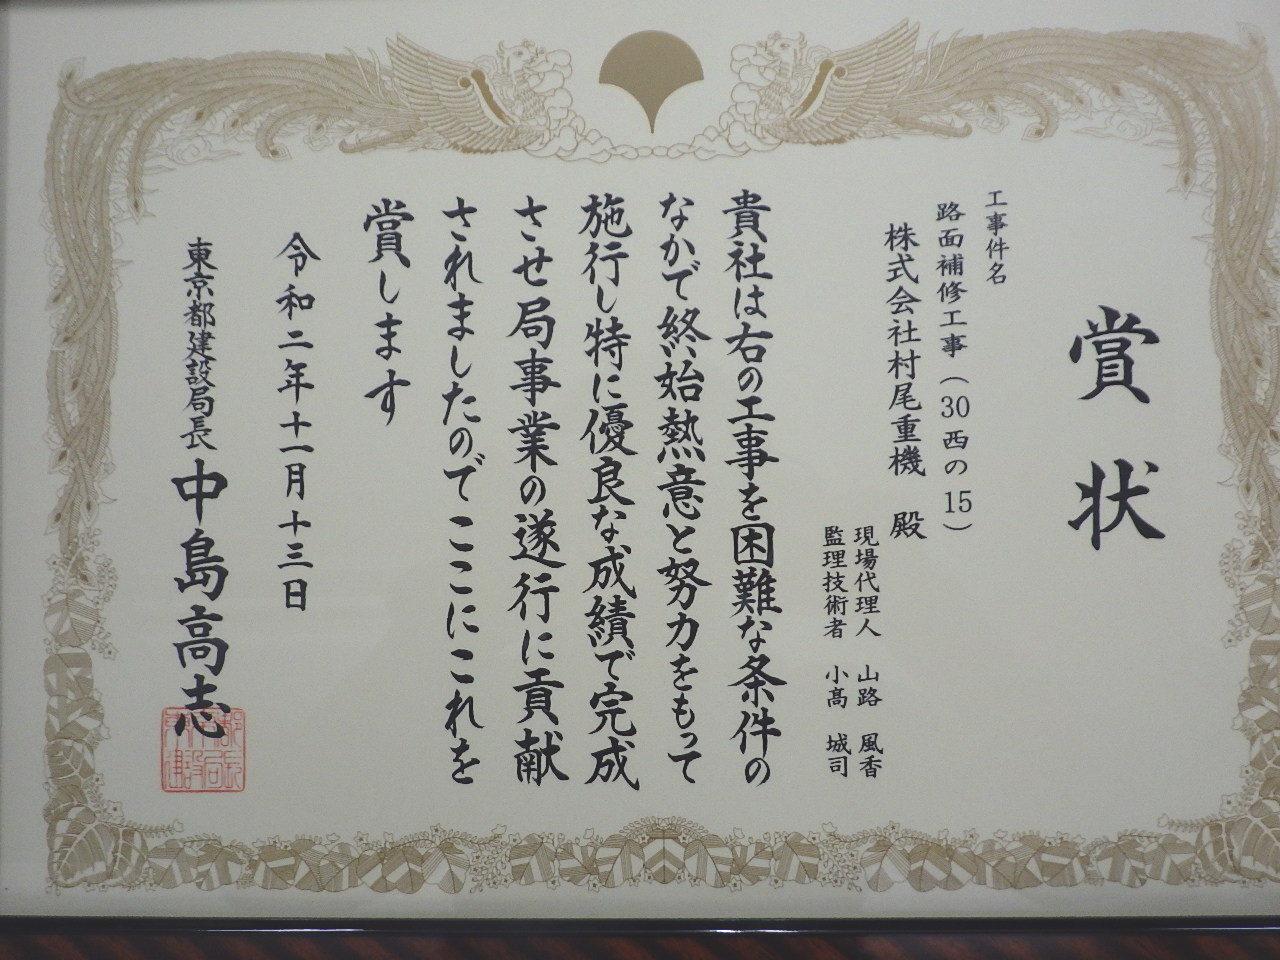 賞状
工事件名
路面補修工事(30西の15)
株式会社村尾重機 殿
現場代理人 山路 風香
監理技術者 小髙 城司
貴社は右の工事を困難な条件の
なかで終始熱意と努力をもって
施行し特に優良な成績で完成
させ局事業の遂行に貢献
されましたのでここにこれを
賞します
令和二年十一月十三日
東京都建設局長 中島高志